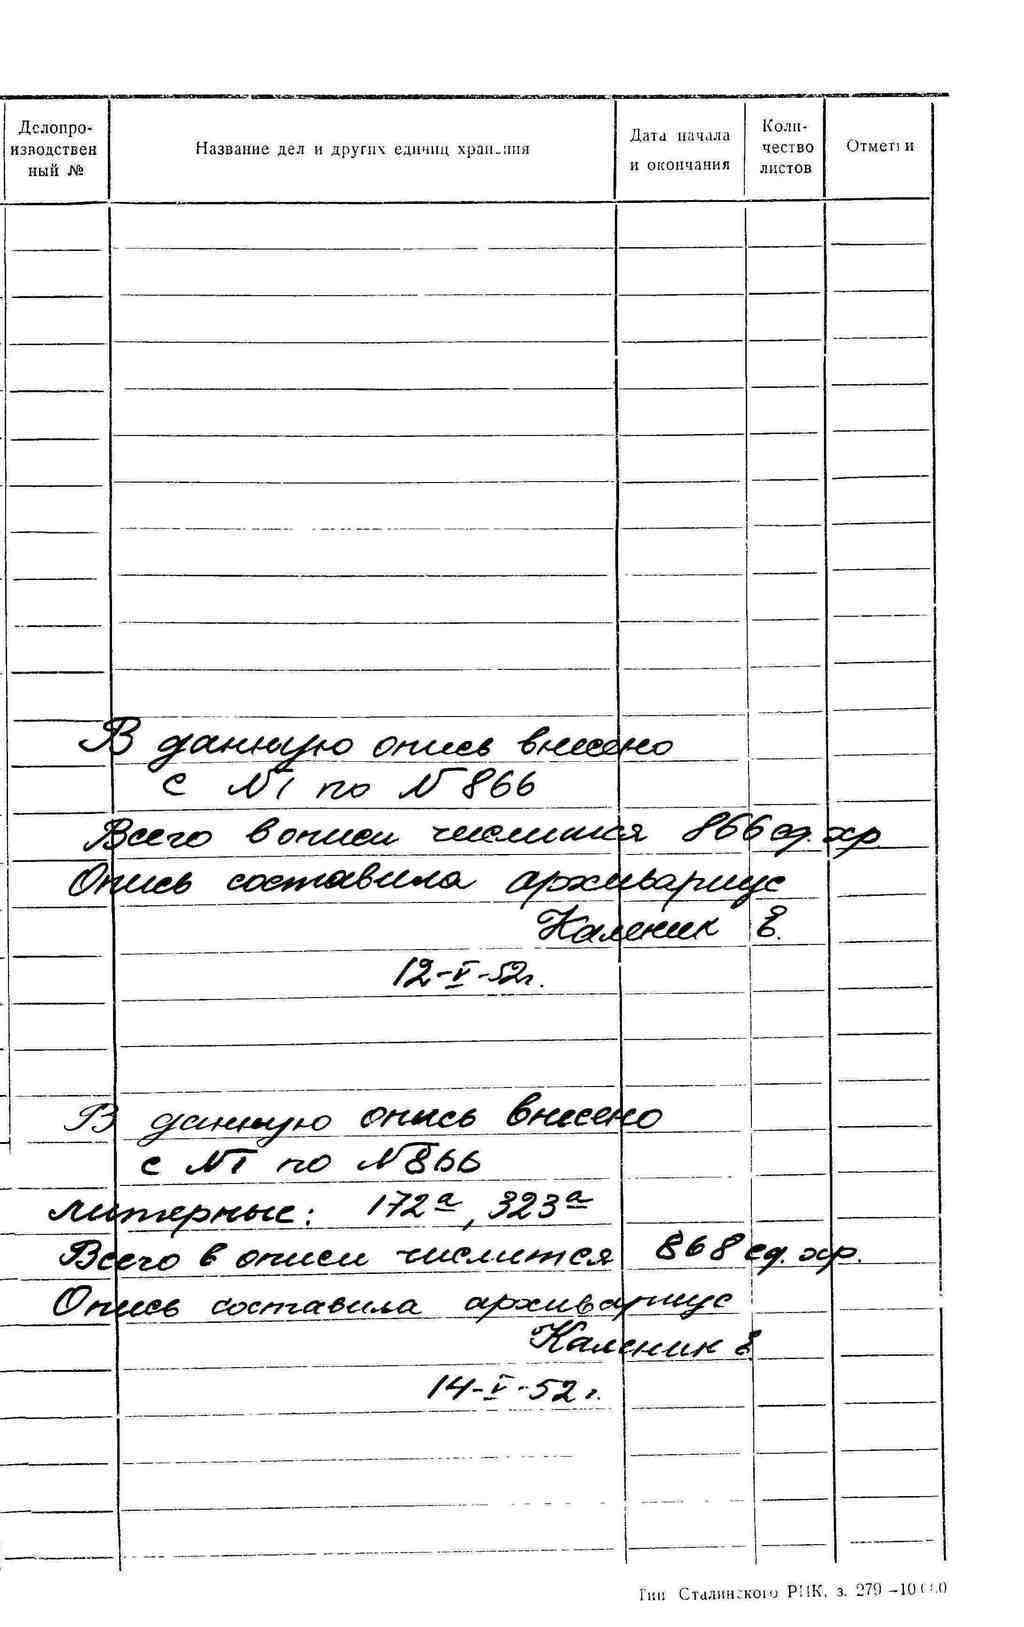 Делопро-
изводствен
ный №
Название дел и других единиц хранения
Дата начала
и окончания
Коли-
чество
листов
Отметки
В данную опись внесено
с №1 по №866
Всего в описи числится 866 ед. хр
Опись составила архивариус
Каленик Е.
12-V-52г.
В данную опись внесено
с №1 по №866
литерные: 172а, 323а
Всего в описи числится 868 ед. хр.
Опись составила архивариус
Каленик Е
14-V-52 г.
Тип Сталинского РИК, з. 279 -10